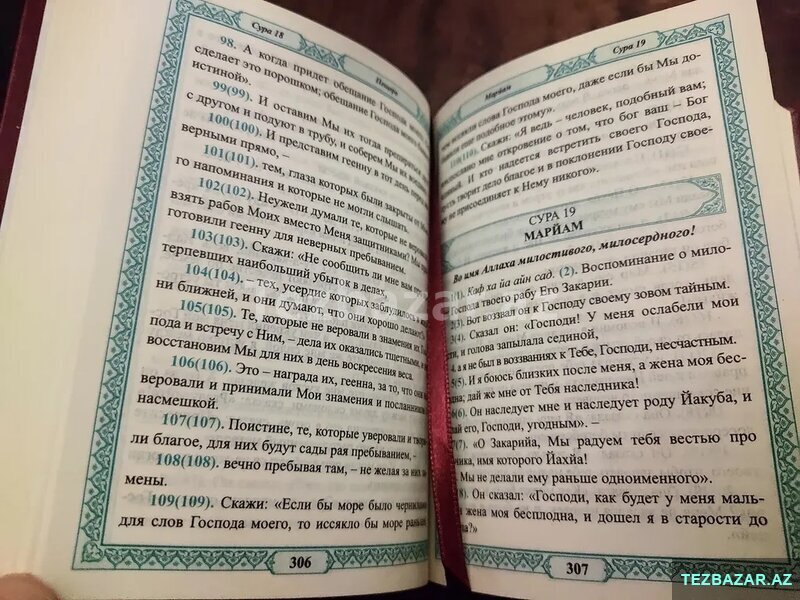 Сура 18
Пещера
98. А когда придет обещание Господа
сделает это порошком; обещание Господа моего
истиной».
99(99). И оставим Мы их тогда препираться
с другом и подуют в трубу, и соберем Мы их
100(100). И представим геенну в тот день
верными прямо, –
101(101). тем, глаза которых были закрыты от
го напоминания и которые не могли слышать.
102(102). Неужели думали те, которые не веровали
взять рабов Моих вместо Меня защитниками? Мы
готовили геенну для неверных пребыванием.
103(103). Скажи: «Не сообщить ли мне вам про
терпевших наибольший убыток в делах,
104(104). – тех, усердие которых заблудилось в
ни ближней, и они думают, что они хорошо делают?
105(105). Те, которые не веровали в знамения их
пода и встречу с Ним, – дела их оказались тщетными, и
восстановим Мы для них в день воскресения веса.
106(106). Это – награда их, геенна, за то, что они
веровали и принимали Мои знамения и посланников
насмешкой.
107(107). Поистине, те, которые уверовали и твори-
ли благое, для них будут сады рая пребыванием, –
108(108). вечно пребывая там, – не желая за них за-
мены.
109(109). Скажи: «Если бы море было чернилами
для слов Господа моего, то иссякло бы море раньше,
306
Марйам
Сура 19
слова Господа моего, даже если бы Мы до-
подобное этому».
110(110). Скажи: «Я ведь – человек, подобный вам;
мне откровение о том, что бог ваш – Бог
И кто надеется встретить своего Господа,
творит дело благое и в поклонении Господу свое-
не присоединяет к Нему никого».
СУРА 19
МАРЙАМ
Во имя Аллаха милостивого, милосердного!
(1). Каф ха йа айн сад. (2). Воспоминание о мило-
Господа твоего рабу Его Закарии.
2(3). Вот воззвал он к Господу своему зовом тайным.
3(4). Сказал он: «Господи! У меня ослабели мои
и голова запылала сединой,
4. а я не был в воззваниях к Тебе, Господи, несчастным.
5(5). И я боюсь близких после меня, а жена моя бес-
дай же мне от Тебя наследника!
(6). Он наследует мне и наследует роду Йакуба, и
его, Господи, угодным». –
(7). «О Закарийа, Мы радуем тебя вестью про
имя которого Йахйа!
Мы не делали ему раньше одноименного».
8). Он сказал: «Господи, как будет у меня маль-
жена моя бесплодна, и дошел я в старости до
307
Tezbazar.az
TEZBAZAR.AZ